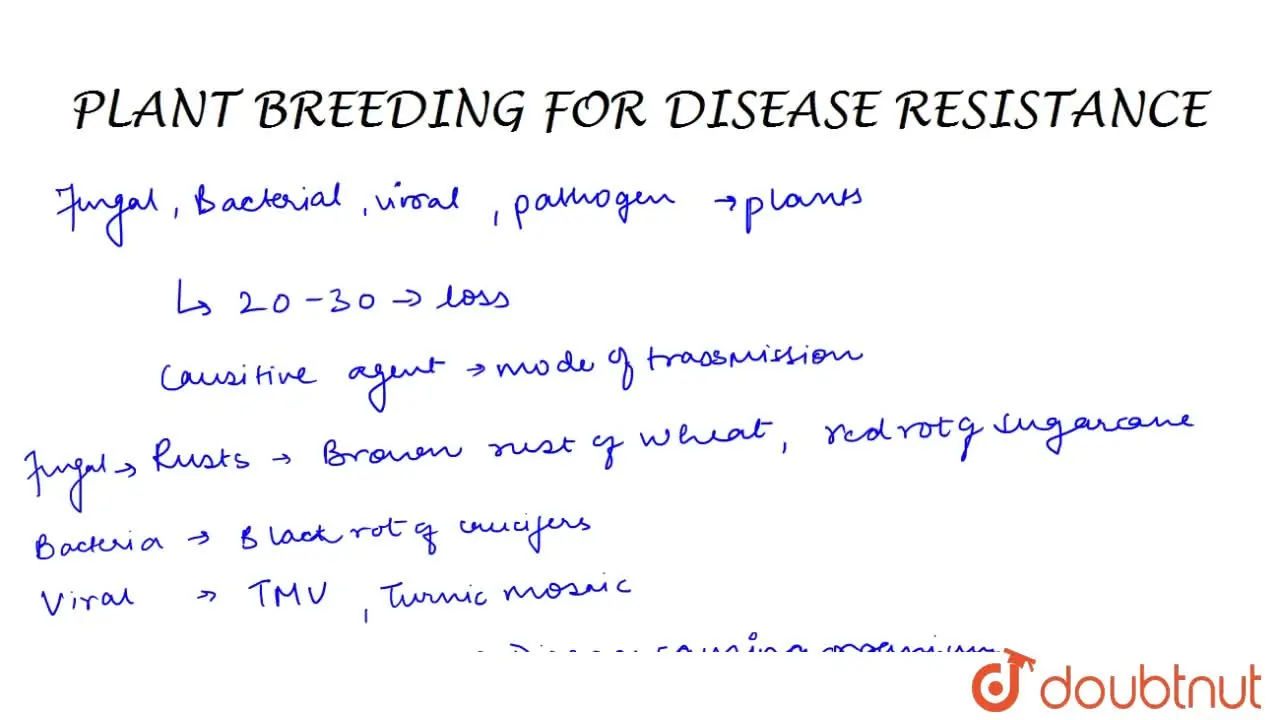 PLANT BREEDING FOR DISEASE RESISTANCE
Fungal, Bacterial, viral, pathogen → plants
↳ 20-30 → loss
Causitive agent → mode of transmission
Fungal → Rusts → Brown rust of wheat, red rot of sugarcane
Bacteria → Black rot of crucifers
Viral → TMV, Turnic mosaic
causing organism
doubtnut